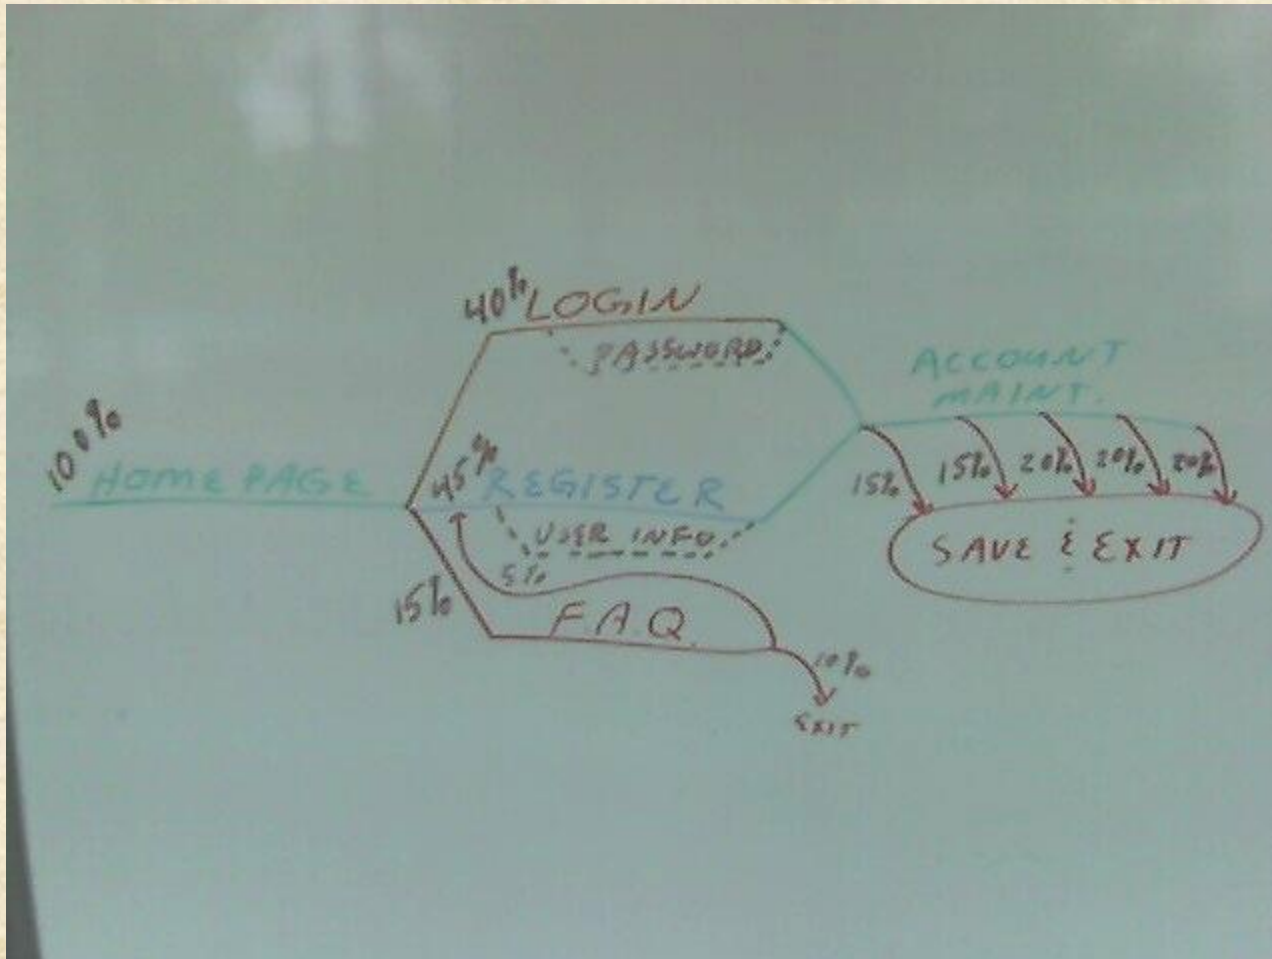 100%
HOME PAGE
40% LOGIN
PASSWORD
45% REGISTER
USER INFO
5%
15%
F.A.Q.
10%
EXIT
ACCOUNT
MAINT.
15%
15%
20%
20%
20%
SAVE & EXIT